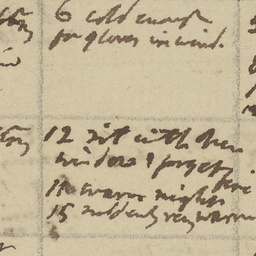 6 cold enough
for gloves in wind.
12 sit with open
window & forget fire
11 warm nights
15 suddenly very warm